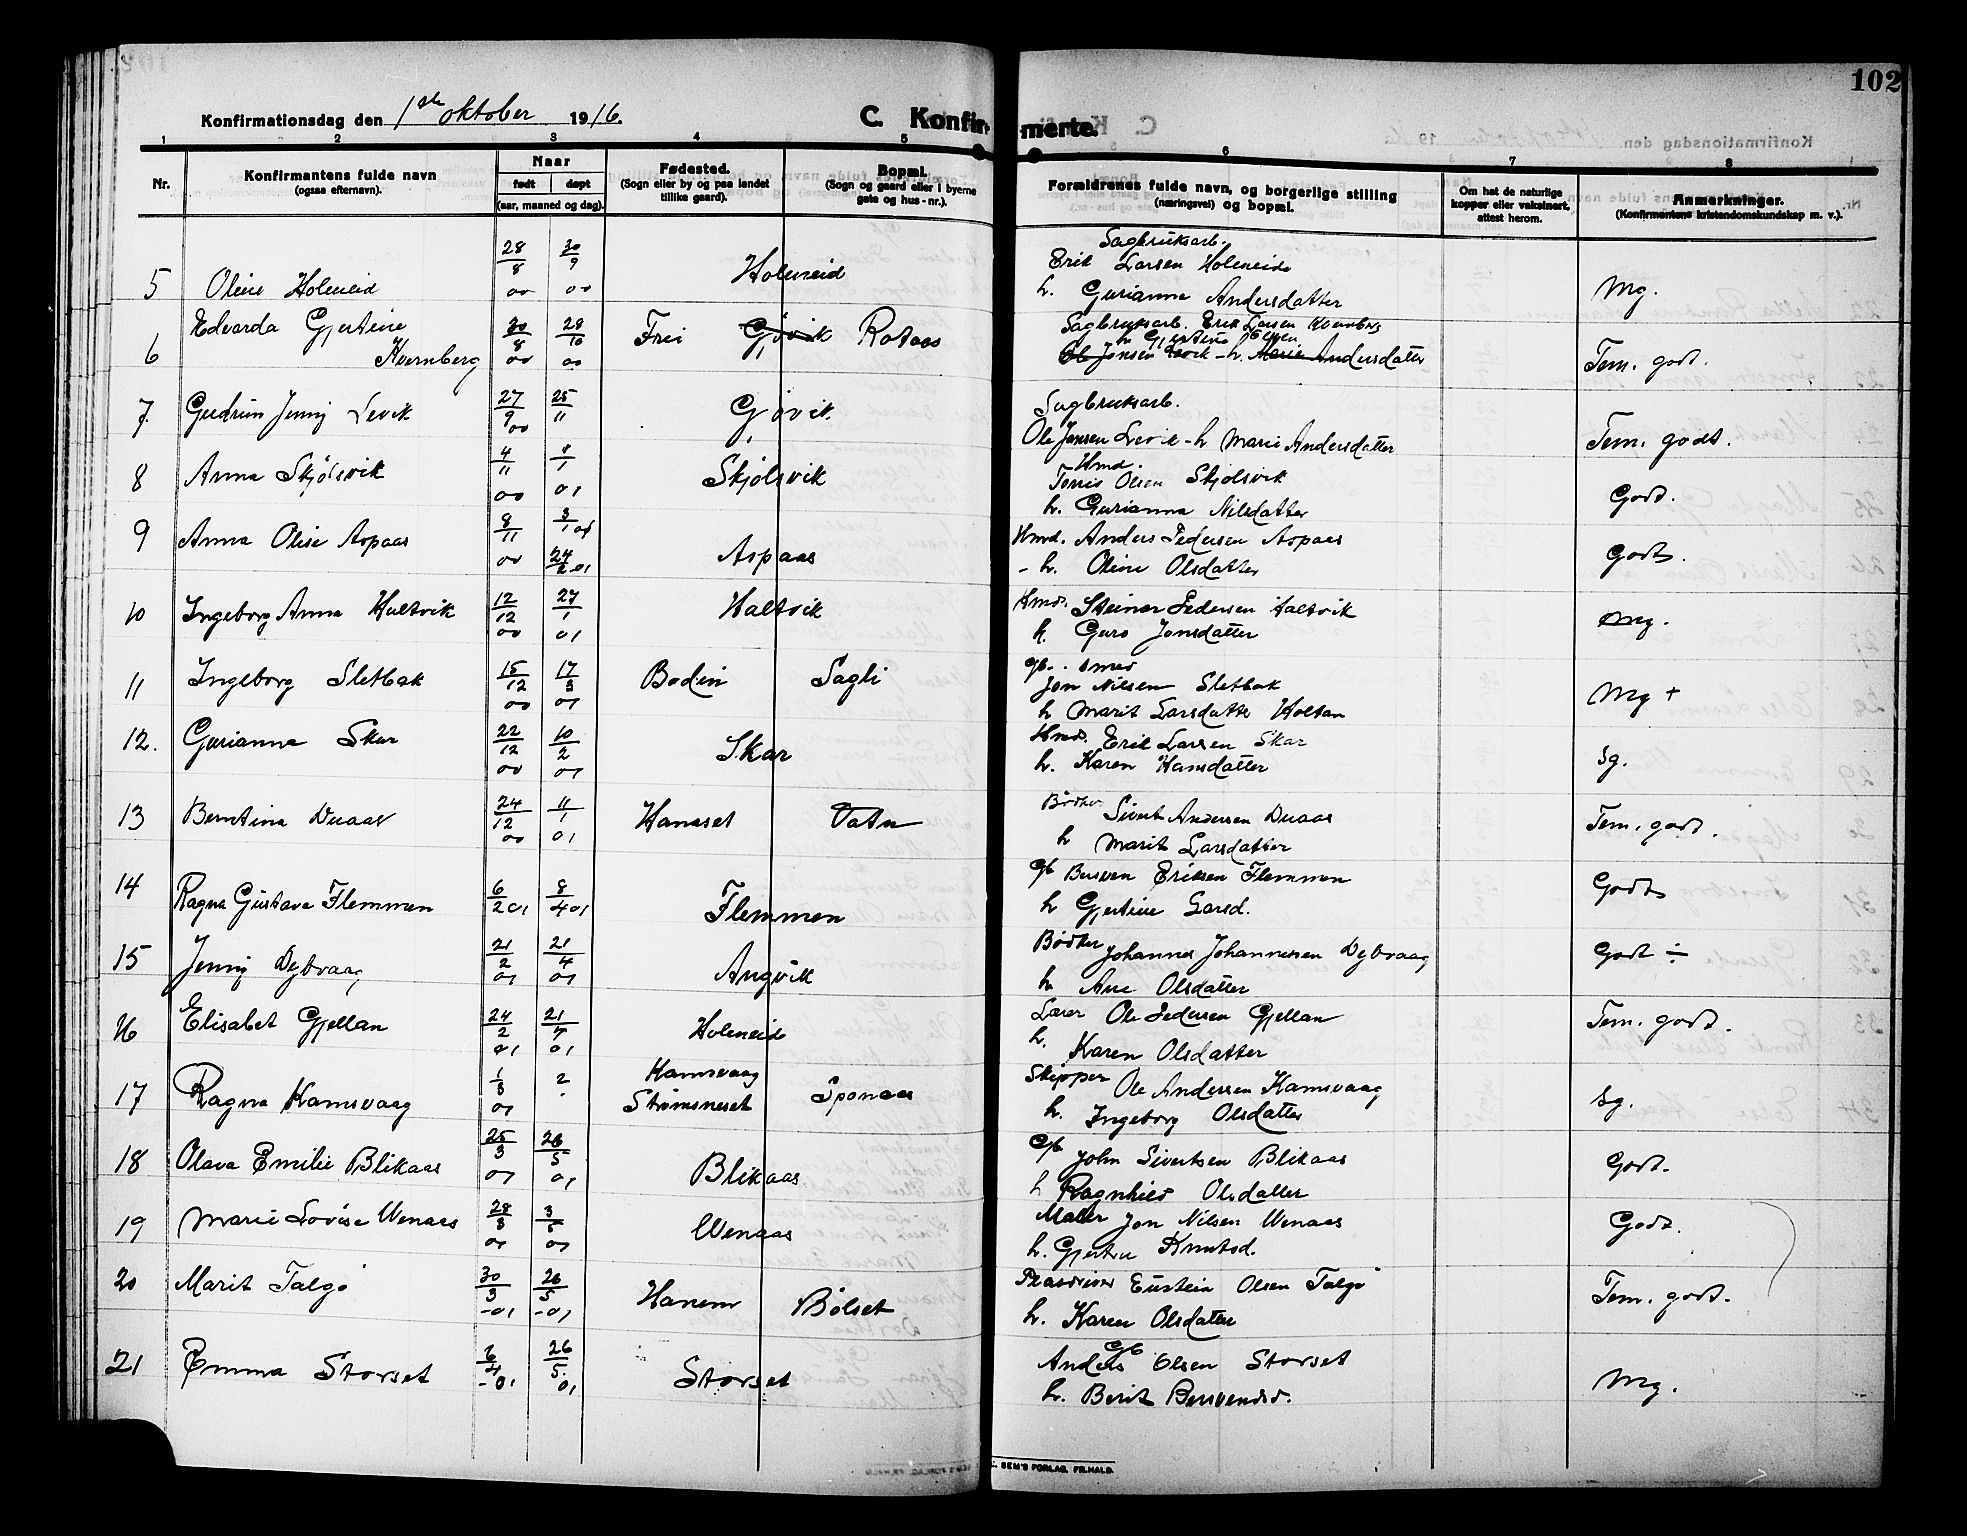 102
Konfirmationsdag den 1ste oktober 1916.
C. Konfirmerte.
1 2 3 4 5 6 7 8
Nr.
Konfirmantens fulde navn
(ogsaa efternavn).
Naar
født døpt
(aar, maaned og dag).
Fødested.
(Sogn eller by og paa landet
tillike gaard).
Bopæl.
(Sogn og gaard eller i byerne
gate og hus-nr.).
Forældrenes fulde navn, og borgerlige stilling
(næringsvei) og bopæl.
Om hat de naturlige
kopper eller vaksinert,
attest herom.
Anmerkninger.
(Konfirmantens kristendomskundskap m. v.).
Sagbruksarb.
5 Oline Holeneid 28/8 00 30/9 00 Holeneid Erik Larsen Holeneid
h. Gurianna Andersdatter Mg.
6 Edvarda Gjertine
Kvernberg 30/8 00 28/10 00 Frei Gjøvik Rotaas Sagbruksarb. Erik Larsen Kvernberg
h Gjertine Olsen
Ole Jonsen Levik - h. Marie Andersdatter Tem. godt.
7. Gudrun Jenny Levik 27/9 00 25/11 Gjøvik. Sagbruksarb.
Ole Jonsen Levik - h Marie Andersdatter Tem. godt.
8 Anna Skjølsvik 4/11 00 1/1 01 Skjølsvik Hmd.
Tørris Olsen Skjølsvik
h. Gurianna Nilsdatter Godt.
9 Anna Oline Aspaas 8/11 00 3/1 01 24/2 01 Aspaas Hmd. Anders Pedersen Aspaas
- h. Oline Olsdatter Godt.
10 Ingeborg Anna Haltvik 12/12 00 27/1 01 Haltvik Hmd. Steiner Pedersen Haltvik
h. Guro Jonsdatter Mg.
11 Ingeborg Sletbak 15/12 00 17/3 01 Bodin Sagli gb. smed
Jon Nilsen Sletbak
h Marit Larsdatter Holten Mg +
12. Gurianna Skar 22/12 00 10/2 01 Skar Hmd. Erik Larsen Skar
h. Karen Hansdatter Sg.
13 Berntina Duaas 24/12 00 11/1 01 Hanaset Vatn Bødker Sivert Andersen Duaas
h Marit Larsdatter Tem. godt.
14 Ragna Gustava Flemmen 6/2 01 8/4 01 Flemmen Gb Bersven Eriksen Flemmen
h Gjertine Larsd. Godt
15 Jenny Dybvaag 21/2 01 21/4 01 Angvik Bødker Johannes Johannessen Dybvaag
h Ane Olsdatter Godt ÷
16 Elisabet Gjellan 24/2 01 21/7 01 Holeneid Lærer Ole Pedersen Gjellan
h. Karen Olsdatter Tem. godt.
17 Ragna Kamsvaag 1/3 01 ? Kamsvaag
Strømsneset Sponaas Skipper Ole Andersen Kamsvaag
h. Ingeborg Olsdatter Sg.
18 Olava Emilie Blikaas 25/3 01 26/5 01 Blikaas Gb John Sivertsen Blikaas
h Ragnhild Olsdatter Godt.
19 Marie Lovise Wenaas 28/3 01 3/5 01 Wenaas Maler Jon Nilsen Wenaas
h. Gjertru Knutsd. Godt.
20 Marit Talgø 30/3 -01 26/5 -01 Hanem Bølset Pladseier Eustein Olsen Talgø
h. Karen Olsdatter Tem. godt.
21 Emma Storset 6/4 -01 26/5. 01 Storset Gb
Anders Olsen Storset
h. Berit Bersvendsd. Mg.
SEM'S FORLAG, FR.HALD.